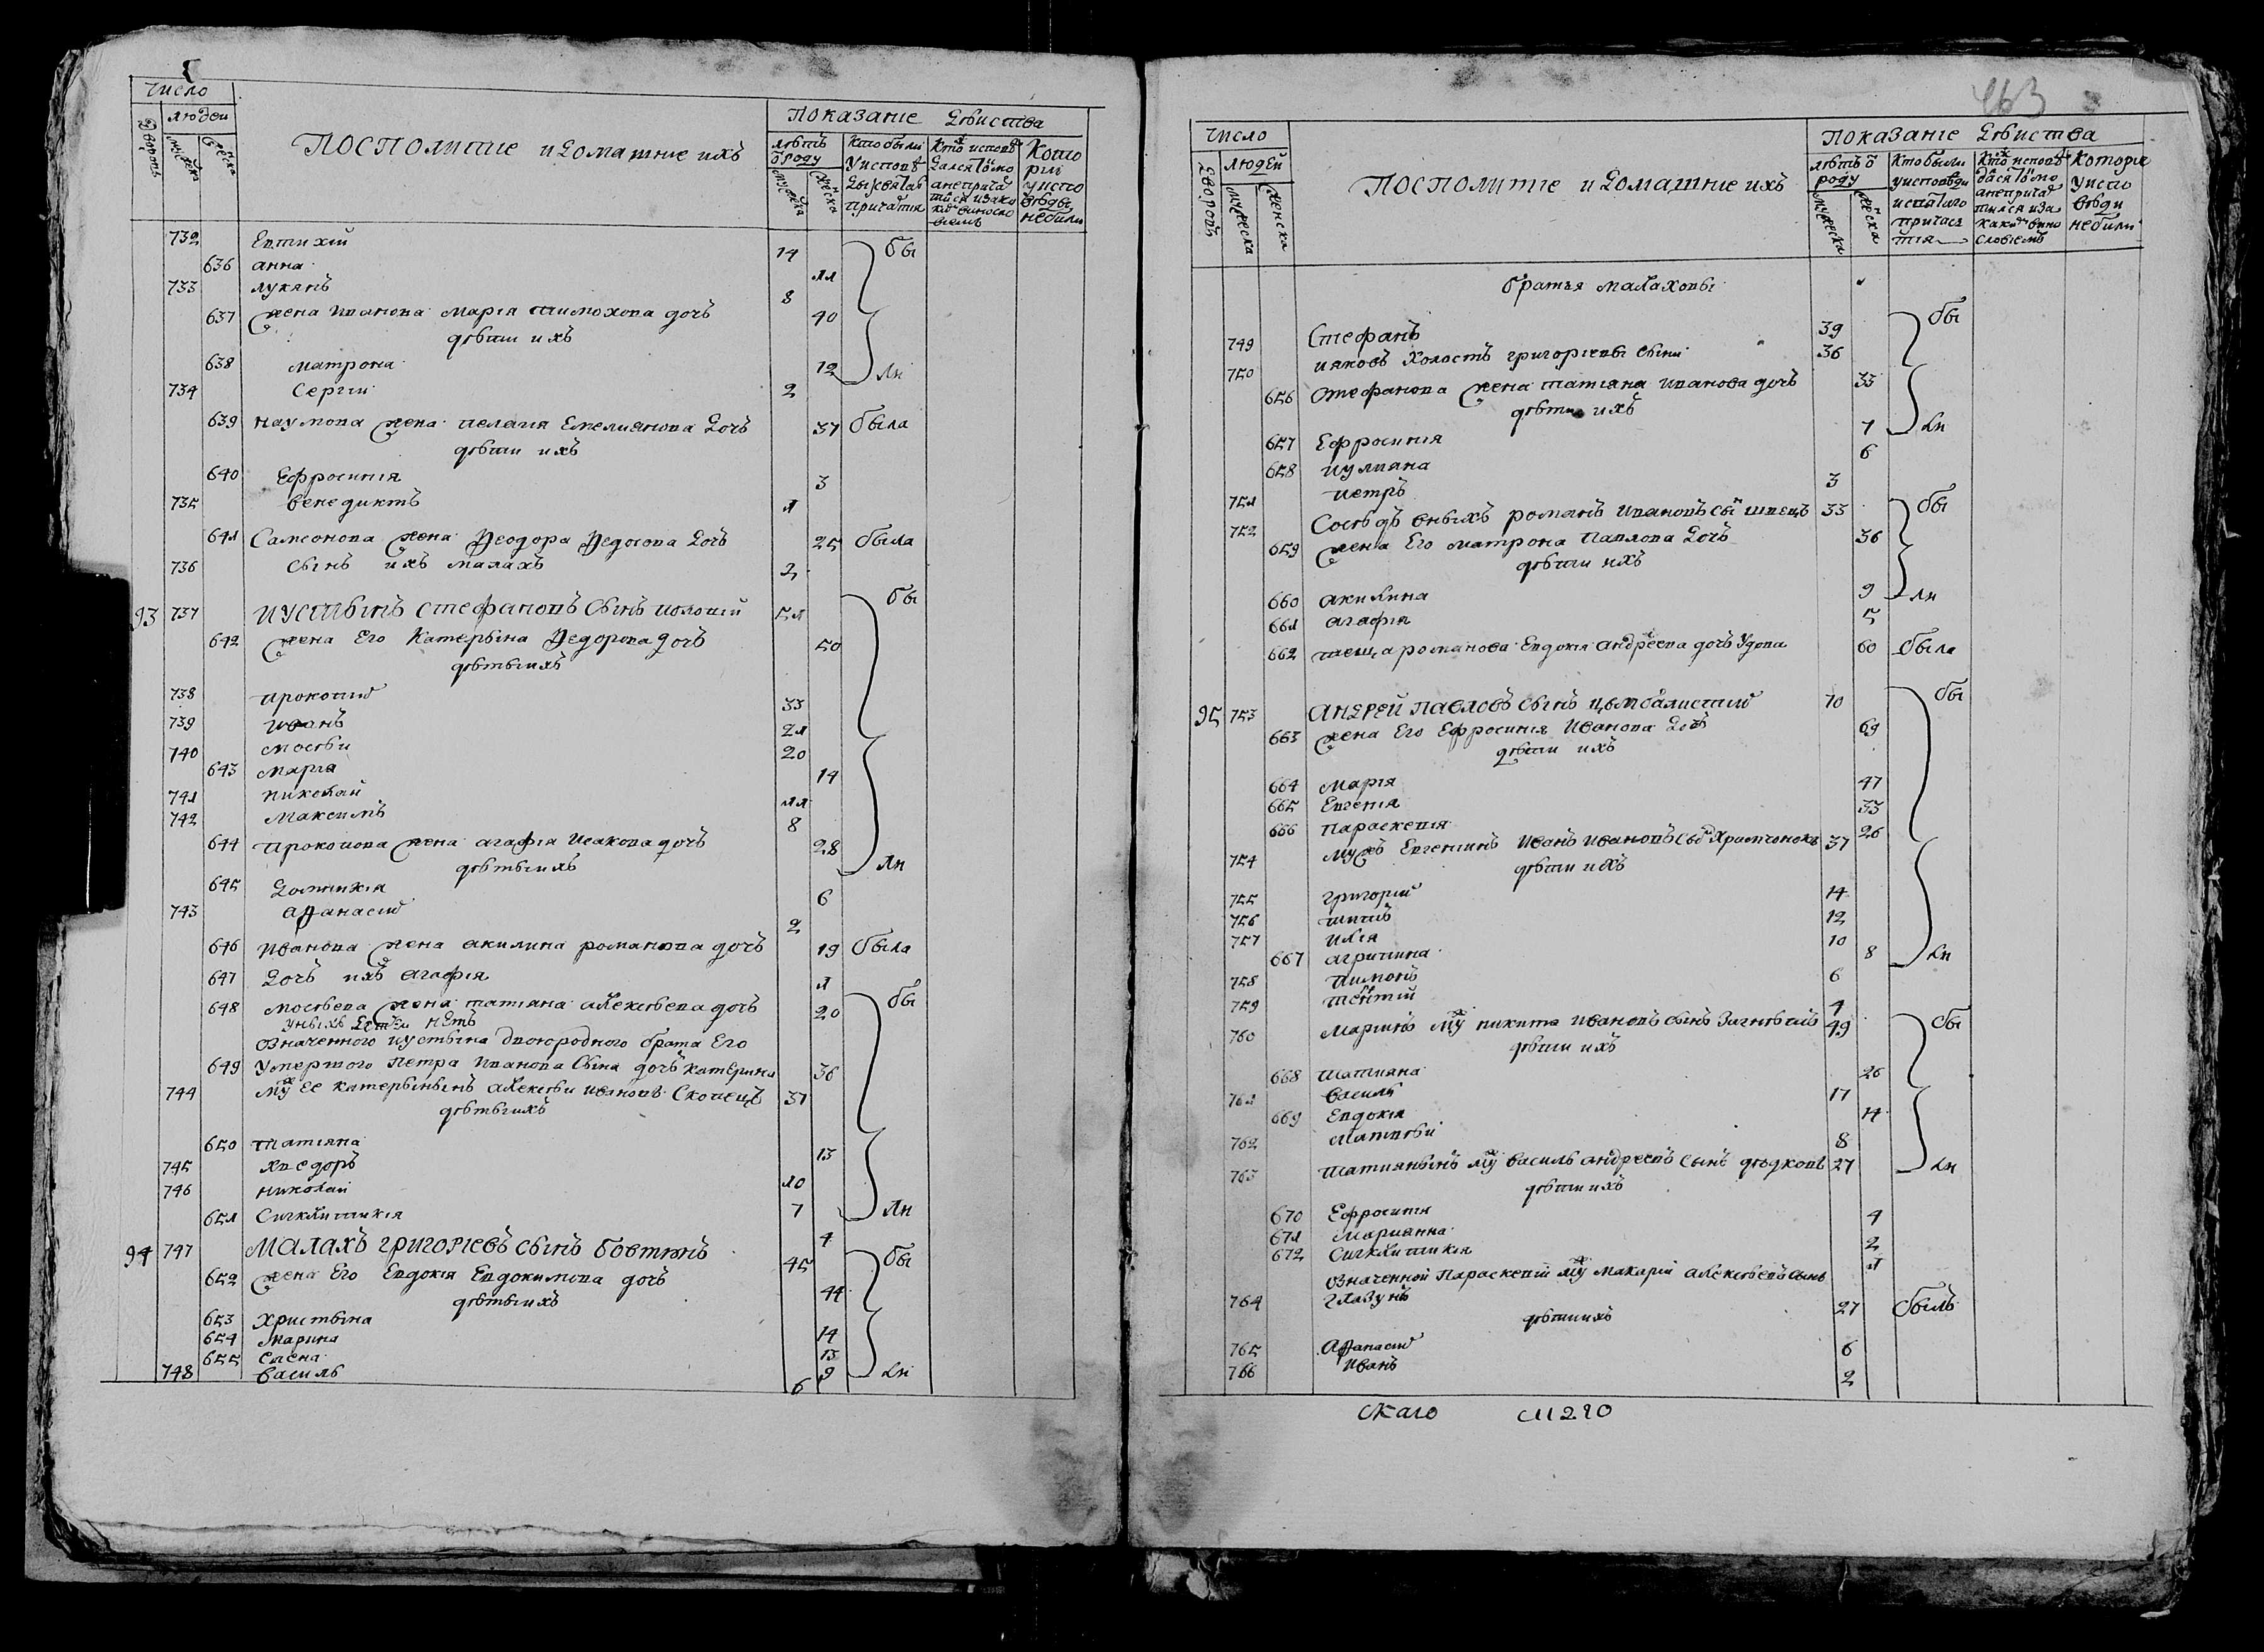 Число
Людей
Дворовъ
мужеска
женска
Посполитіе и домашніе ихъ
Показаніе Дѣиства
лѣтъ ѿ роду
мужеска
женска
Кто были у исповѣди и святаго причастія
Кто исповѣдался токмо а непричастился и за какимъ винословіемъ
Которіи у исповѣди небили
732 Евтихій 14 бы
636 анна 11
733 лукянъ 8
637 жена Иванова Марія тимохова дочъ 40
дѣти ихъ
638 матрона 12 ли
734 Сергій 2
639 наумова жена пелагия Емелиянова Дочъ 37 была
дѣти ихъ
640 Ефросинія 3
735 венедиктъ 1
641 Самсонова жена Феодора Федосова Дочъ 25 была
736 сынъ ихъ малахъ 2
93 737 Иустынъ стефановъ сынъ 51 бы
642 жена Его Катерына Федорова дочъ 50
дѣты ихъ
738 прокопий 33
739 иванъ 21
740 мосѣй 20
643 марія 14
741 николай 11
742 максимъ 8
644 прокопова жена агафія Исакова дочъ 28 ли
дѣты ихъ
645 Домникія 6
743 афанасий 2
646 иванова жена акилина романова дочъ 19 была
647 Дочъ ихъ агафія 1
648 мосѣева жена татіяна алексѣева дочъ 20 бы
у ныхъ детей нетъ
означенного иустына двоюродного брата Его
649 Умершого Петра Иванова сына дочъ катерина 36
744 мужъ ее катерынынъ алексѣй ивановъ Скопецъ 37
дѣты ихъ
650 татіяна 13
745 хведоръ 10
746 николай 7
651 Сигклитикія 4 ли
94 747 Малахъ григоріевъ сынъ бовтунъ 45 бы
652 жена Его Евдокія Евдокимова дочъ 44
дѣты ихъ
653 христына 14
654 марина 13
655 елена 9
748 василь 6 ли
463
Число
Людей
Дворовъ
мужеска
женска
Посполитіе и домашніе ихъ
Показаніе Дѣиства
лѣтъ ѿ роду
мужеска
женска
Кто были у исповѣди и святаго причастія
Кто исповѣдася токмо а непричастился и за какимъ винословіемъ
Которіе у исповѣди небили
братья малаховы
749 Стефанъ 39 бы
750 иаковъ холостъ григоріевы сыни 36
656 стефанова жена татіяна иванова дочъ 33
дѣти ихъ
657 Ефросинія 7 ли
658 иулияна 6
751 петръ 3
752 Сосѣдъ оныхъ романъ ивановъ сынъ швецъ 33 бы
659 жена Его матрона павлова Дочъ 36
дѣти ихъ
660 акилина 9 ли
661 агафія 5
662 теща романова Евдокія андреева дочъ Удова 60 была
95 753 Андрей павловъ сынъ цымбалистий 70 бы
663 жена Его Ефросинія Иванова Дочъ 69
дѣти ихъ
664 марія 47
665 Евгенія 33
666 параскевія 26
754 мужъ Евгенинъ Иванъ Ивановъ сынъ 37
дѣти ихъ
755 григорий 14
756 титъ 12
757 илія 10
667 агрипина 8 ли
758 тимонъ 6
759 4
760 Маринъ мужъ никита ивановъ сынъ 49 бы
дѣти ихъ
668 татияна 26
761 василь 17
669 Евдокія 14
762 матвѣй 8
763 татиянынъ мужъ василь андреевъ сынъ дѣдковъ 27 ли
дѣти ихъ
670 Ефросинія 4
671 Мариянна 2
672 Сигклитикія 1
означенной Параскевіи мужъ макарій алексѣевъ сынъ
764 глазунъ 27 былъ
дѣти ихъ
765 Афанасий 6
766 Иванъ 2
скаго